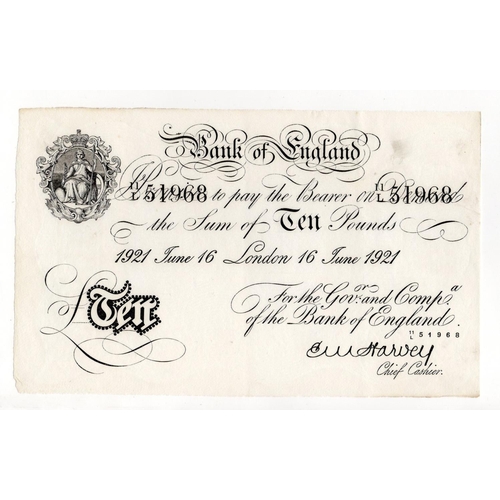 Bank of England
11/L 51968 to pay the Bearer on Demand 11/L 51968
the Sum of Ten Pounds
1921 June 16 London 16 June 1921
£Ten
For the Govr. and Compa.
of the Bank of England.
11/L 51968
E M Harvey
Chief Cashier.